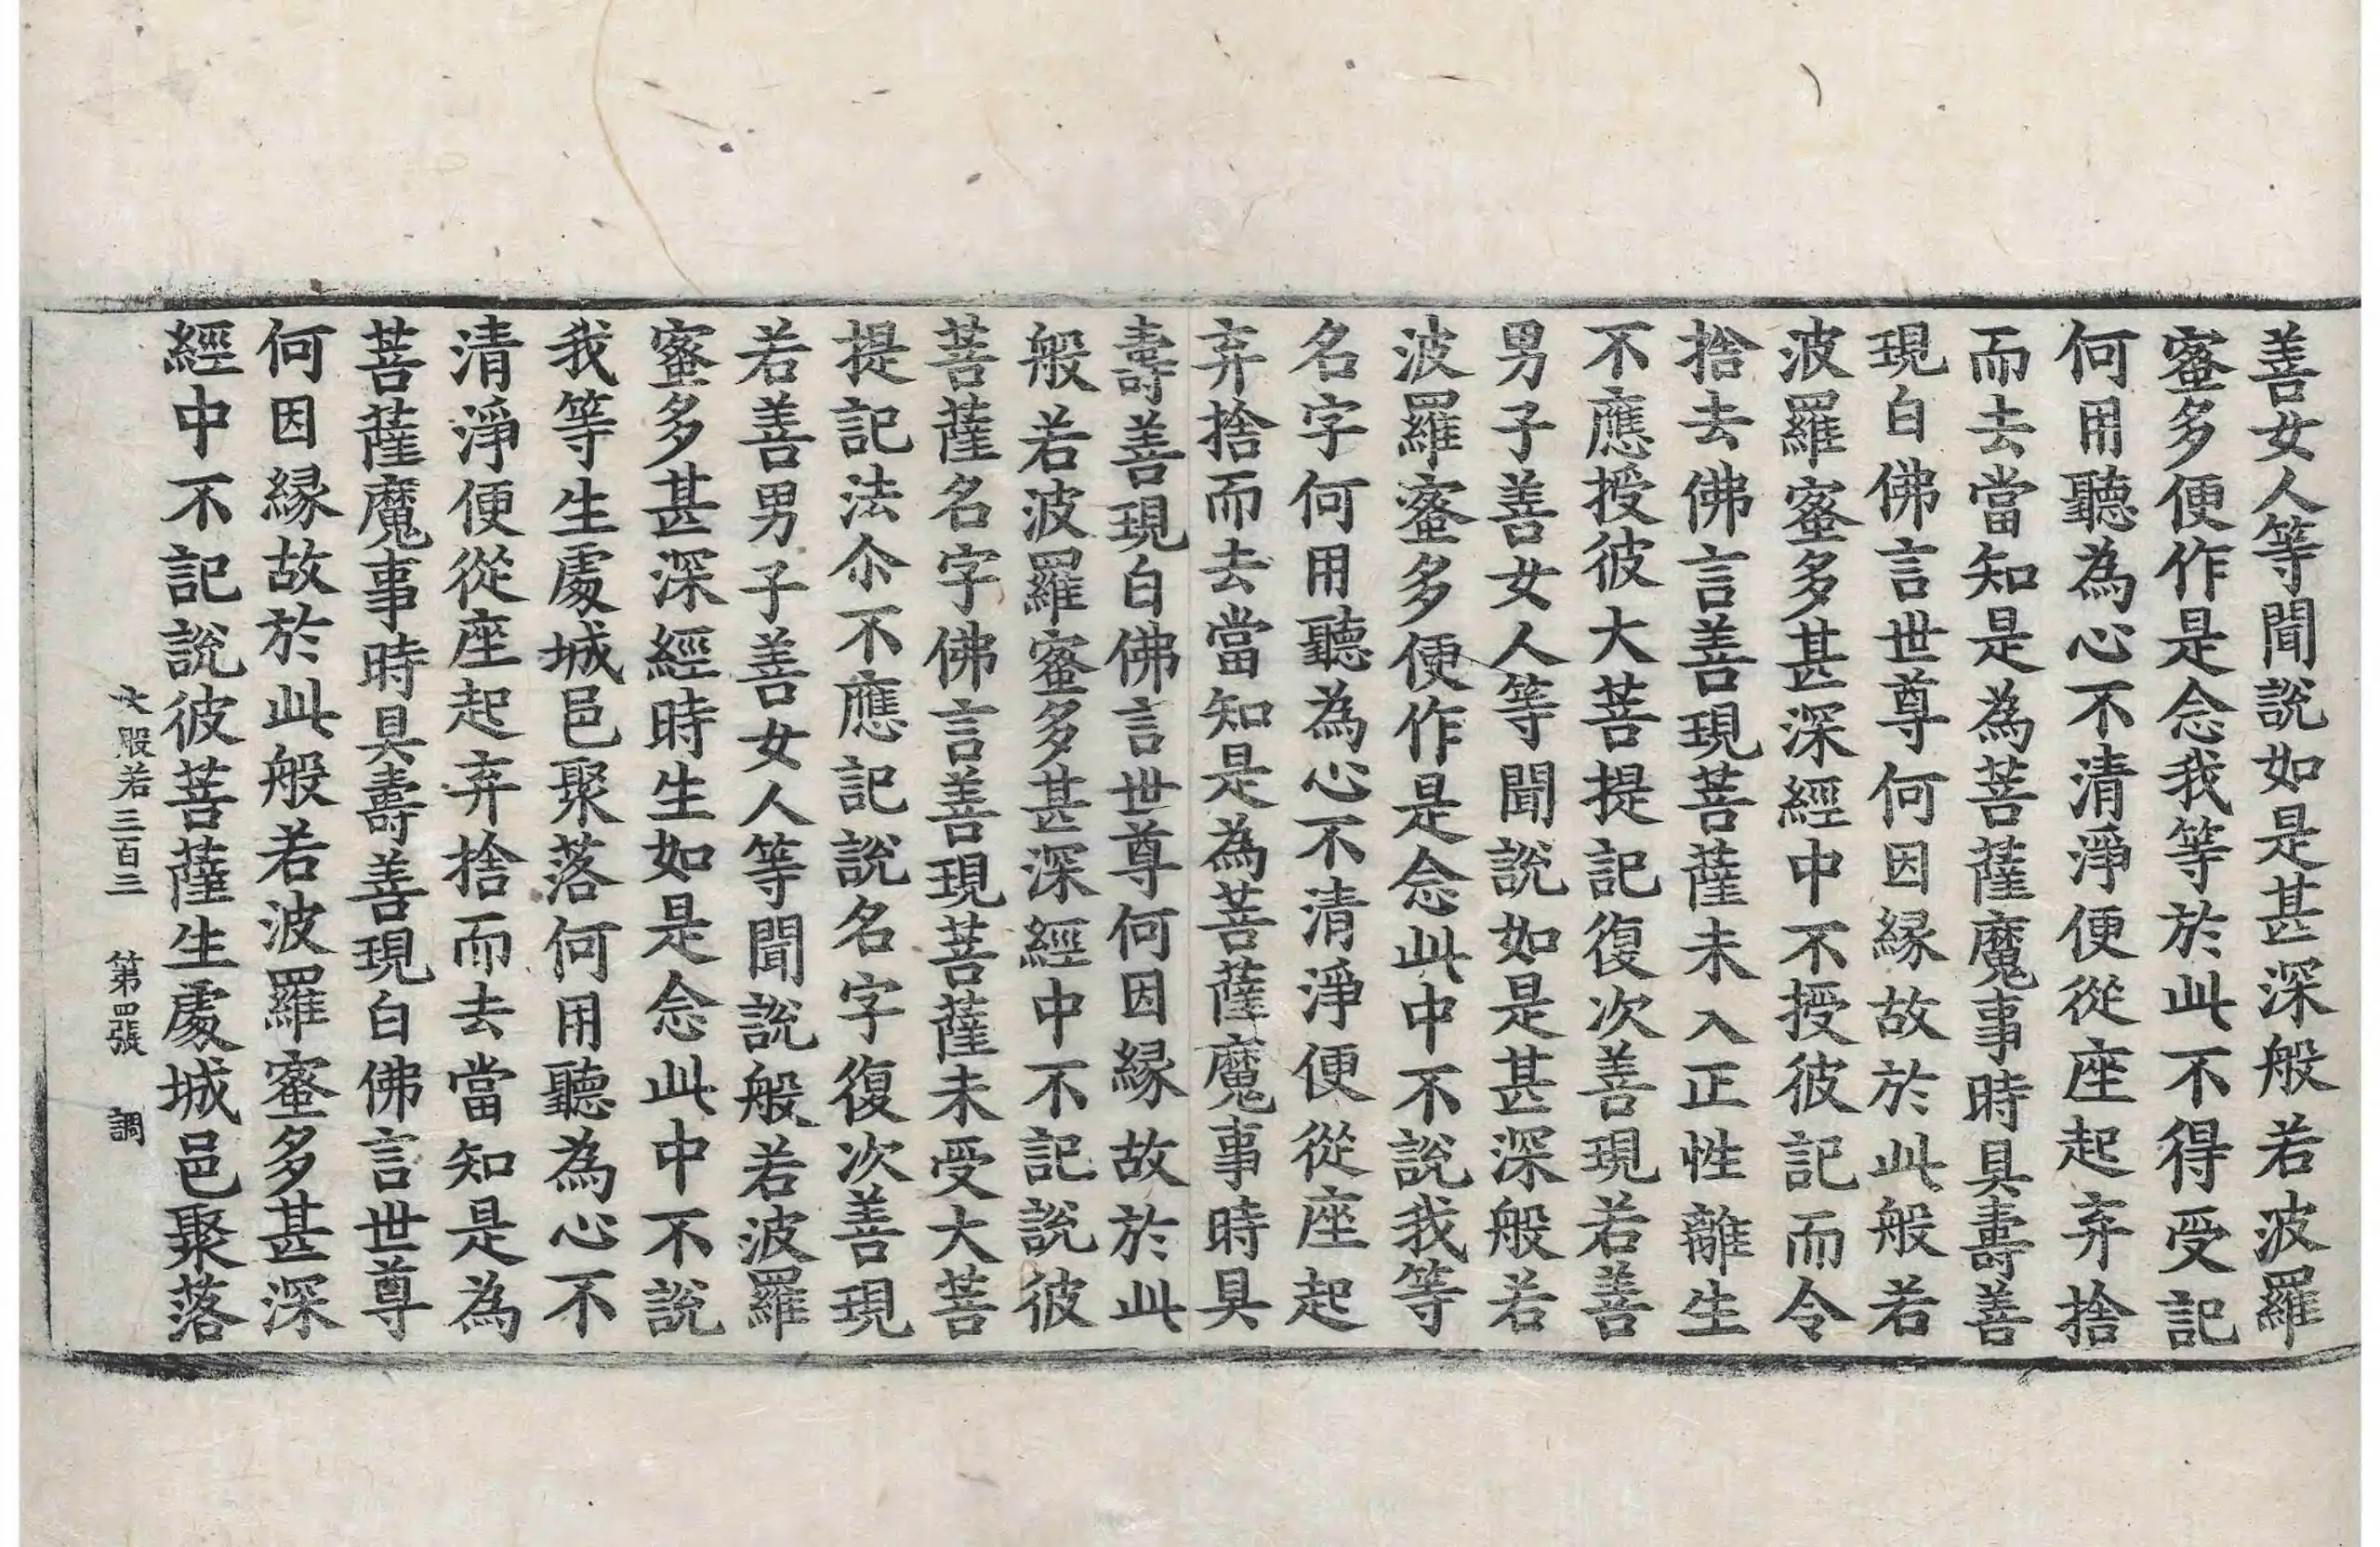 善女人等聞說如是甚深般若波羅
蜜多便作是念我等於此不得受記
何用聽為心不清淨便從座起弃捨
而去當知是為菩薩魔事時具壽善
現白佛言世尊何因緣故於此般若
波羅蜜多甚深經中不授彼記而令
捨去佛言善現菩薩未入正性離生
不應授彼大菩提記復次善現若善
男子善女人等聞說如是甚深般若
波羅蜜多便作是念此中不說我等
名字何用聽為心不清淨便從座起
弃捨而去當知是為菩薩魔事時具
壽善現白佛言世尊何因緣故於此
般若波羅蜜多甚深經中不記說彼
菩薩名字佛言善現菩薩未受大菩
提記法尒不應記說名字復次善現
若善男子善女人等聞說般若波羅
蜜多甚深經時生如是念此中不說
我等生處城邑聚落何用聽為心不
清淨便從座起弃捨而去當知是為
菩薩魔事時具壽善現白佛言世尊
何因緣故於此般若波羅蜜多甚深
經中不記說彼菩薩生處城邑聚落
大般若三百三 第四張 調